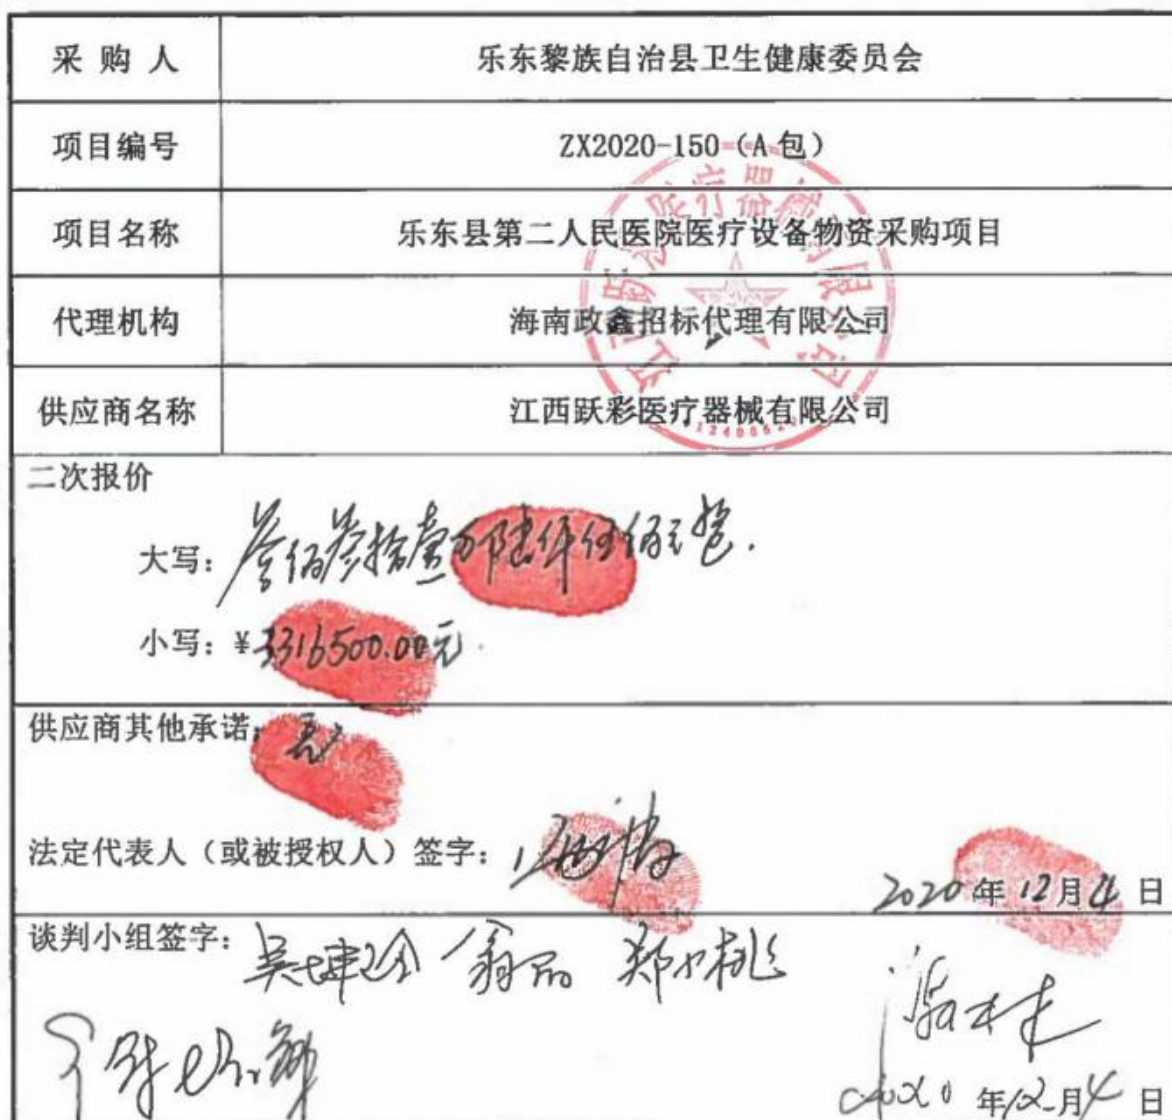 采 购 人 乐东黎族自治县卫生健康委员会
项目编号 ZX2020-150（A包）
项目名称 乐东县第二人民医院医疗设备物资采购项目
代理机构 海南政鑫招标代理有限公司
供应商名称 江西跃彩医疗器械有限公司
二次报价
大写：叁佰叁拾壹万陆仟伍佰元整.
小写：¥3316500.00元.
供应商其他承诺：无
法定代表人（或被授权人）签字：
2020年12月4日
谈判小组签字：
2020年12月4日